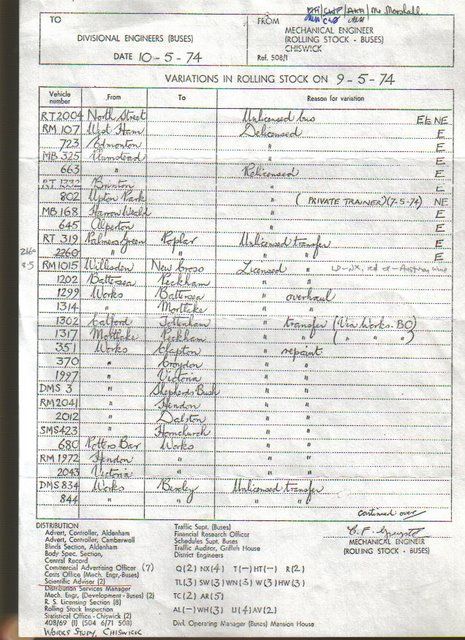 TO
FROM
Mr Marshall
DIVISIONAL ENGINEERS (BUSES)
MECHANICAL ENGINEER
(ROLLING STOCK - BUSES)
CHISWICK
DATE 10-5-74
Ref. 508/1
VARIATIONS IN ROLLING STOCK ON 9-5-74
Vehicle number From To Reason for variation
RT2004 North Street Unlicensed bus E NE
RM 107 West Ham Delicensed E
723 Edmonton " E
MB 325 Plumstead " E
663 " Relicensed E
RT 1332 Brixton " E
802 Upton Park " (PRIVATE TRAINER)(7-5-74) NE
MB 168 Harrow Weald " E
645 Alperton " E
RT 319 Palmers Green Poplar Unlicensed transfer E
2260 " " " " E
RM1015 Willesden New Cross Licensed "
1202 Battersea Peckham " "
1299 Works Battersea " overhaul
1314 " Mortlake " "
1302 Catford Tottenham " transfer (Via Works. BO)
1317 Mortlake Peckham " " ( " " " )
351 Works Clapton " repaint
370 " Croydon " "
1997 " Victoria " "
DMS 3 " Shepherds Bush " "
RM2041 " Hendon " "
2012 " Dalston " "
SMS423 " Hornchurch " "
680 Potters Bar Works " "
RM 1972 Hendon " " "
2043 Victoria " " "
DMS 834 Works Bexley Unlicensed transfer
844 " " " "
continued over
DISTRIBUTION
Advert, Controller, Aldenham
Advert, Controller, Camberwell
Blinds Section, Aldenham
Body Spec. Section,
Central Record
Commercial Advertising Officer (7)
Costs Office (Mech. Engr.-Buses)
Scientific Adviser (2)
Distribution Services Manager
Mech. Engr, (Development - Buses) (2)
R. S. Licensing Section (8)
Rolling Stock Inspection
Statistical Office - Chiswick (2)
408/69 (1) (504 6/71 508)
WORKS STUDY, CHISWICK
Traffic Supt. (Buses)
Financial Research Officer
Schedules Supt. Buses
Traffic Auditor, Griffith House
District Engineers
Q(2) NX(4) T(-) HT(-) R(2)
TL(3) SW(3) WN(3) W(3) HW(3)
TC(2) AR(5)
AL(-) WH(3) U(4) AV(2)
Divl. Operating Manager (Buses) Mansion House
MECHANICAL ENGINEER
(ROLLING STOCK - BUSES)